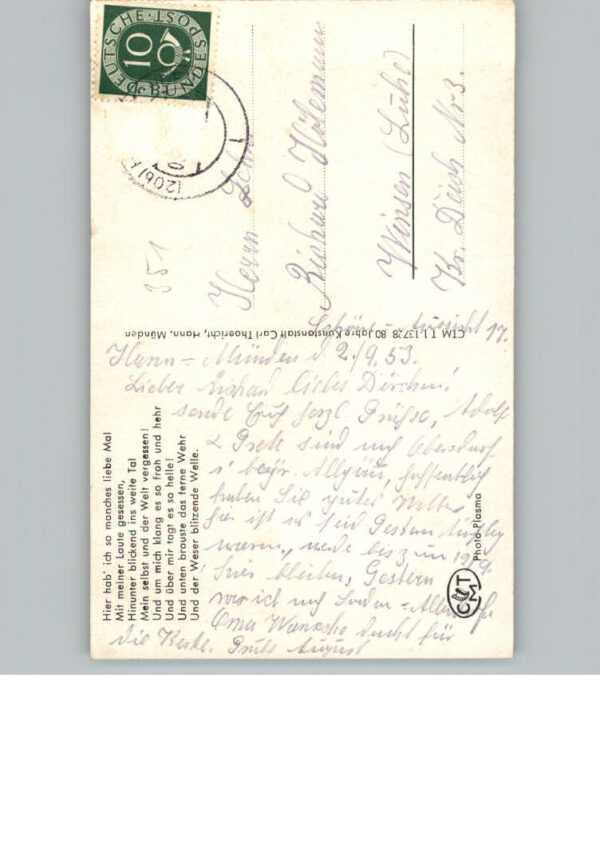 Hier hab' ich so manches liebe Mal
Mit meiner Laute gesessen,
Hinunter blickend ins weite Tal
Mein selbst und der Welt vergessen!
Und um mich klang es so froh und hehr
Und über mir tagt es so helle!
Und unten brauste das ferne Wehr
Und der Weser blitzende Welle.
Schöne-Aussicht 17.
Hann-Münden d. 2./9.53.
Lieber liebes Dörchen!
sende Euch herzl. Grüße, Adolf
& Grete sind nach Oberstdorf
i bayr. Allgäu, hoffentlich
haben Sie gutes Wetter
hier ist es seid Gestern
werde bis zum 19/9.
hier bleiben, Gestern
war ich nach Sooden-Allendorf
Oma für
die Karte. Gruß August
CTM T 1-13728 80 Jahre Kunstanstalt Carl Thoericht, Hann.-Münden
CTM
Photo-Plasma
DEUTSCHE BUNDESPOST
10
(20b)
351
Herrn
Richard
Winsen (Luhe)
Kr. Deich Nr 3.